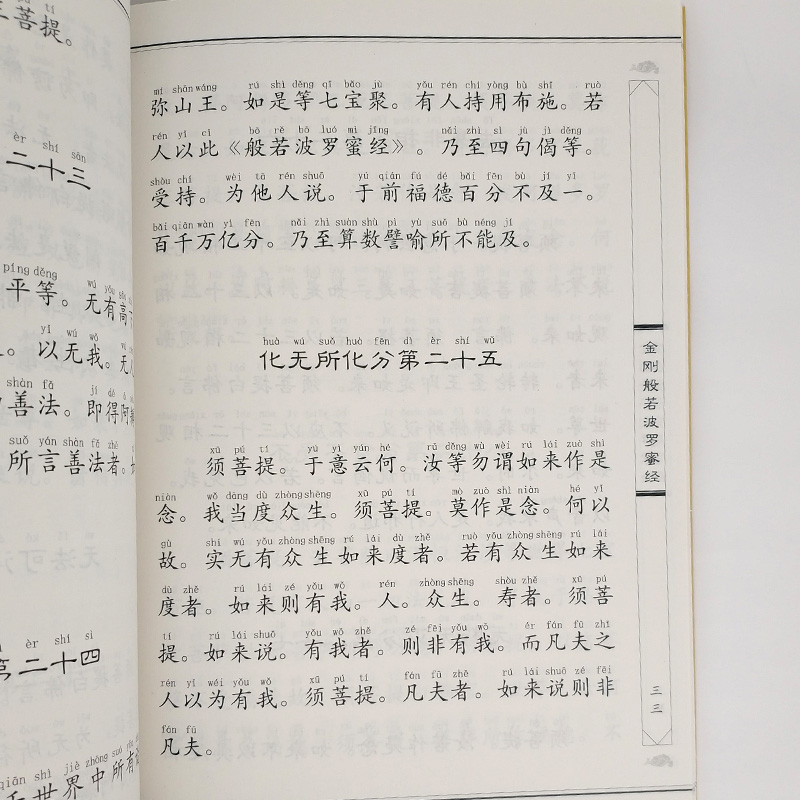 pú tí
菩提。
èr shí sān
二十三
píng děng wú yǒu
平等。无有高
yǐ wú wǒ wú
以无我。无
shàn fǎ jí dé
善法。即得阿
suǒ yán shàn fǎ zhě
所言善法者。
èr shí sì
第二十四
qiān shì jiè zhōng suǒ
千世界中所有
mí shān wáng rú shì děng qī bǎo jù yǒu rén chí yòng bù shī ruò
弥山王。如是等七宝聚。有人持用布施。若
rén yǐ cǐ bō rě bō luó mì jīng nǎi zhì sì jù jì děng
人以此《般若波罗蜜经》。乃至四句偈等。
shòu chí wèi tā rén shuō yú qián fú dé bǎi fēn bù jí yī
受持。为他人说。于前福德百分不及一。
bǎi qiān wàn yì fēn nǎi zhì suàn shù pì yù suǒ bù néng jí
百千万亿分。乃至算数譬喻所不能及。
huà wú suǒ huà fēn dì èr shí wǔ
化无所化分第二十五
xū pú tí yú yì yún hé rǔ děng wù wèi rú lái zuò shì
须菩提。于意云何。汝等勿谓如来作是
niàn wǒ dāng dù zhòng shēng xū pú tí mò zuò shì niàn hé yǐ
念。我当度众生。须菩提。莫作是念。何以
gù shí wú yǒu zhòng shēng rú lái dù zhě ruò yǒu zhòng shēng rú lái
故。实无有众生如来度者。若有众生如来
dù zhě rú lái zé yǒu wǒ rén zhòng shēng shòu zhě xū pú
度者。如来则有我。人。众生。寿者。须菩
tí rú lái shuō yǒu wǒ zhě zé fēi yǒu wǒ ér fán fū zhī
提。如来说。有我者。则非有我。而凡夫之
rén yǐ wéi yǒu wǒ xū pú tí fán fū zhě rú lái shuō zé fēi
人以为有我。须菩提。凡夫者。如来说则非
fán fū
凡夫。
金刚般若波罗蜜经
三三